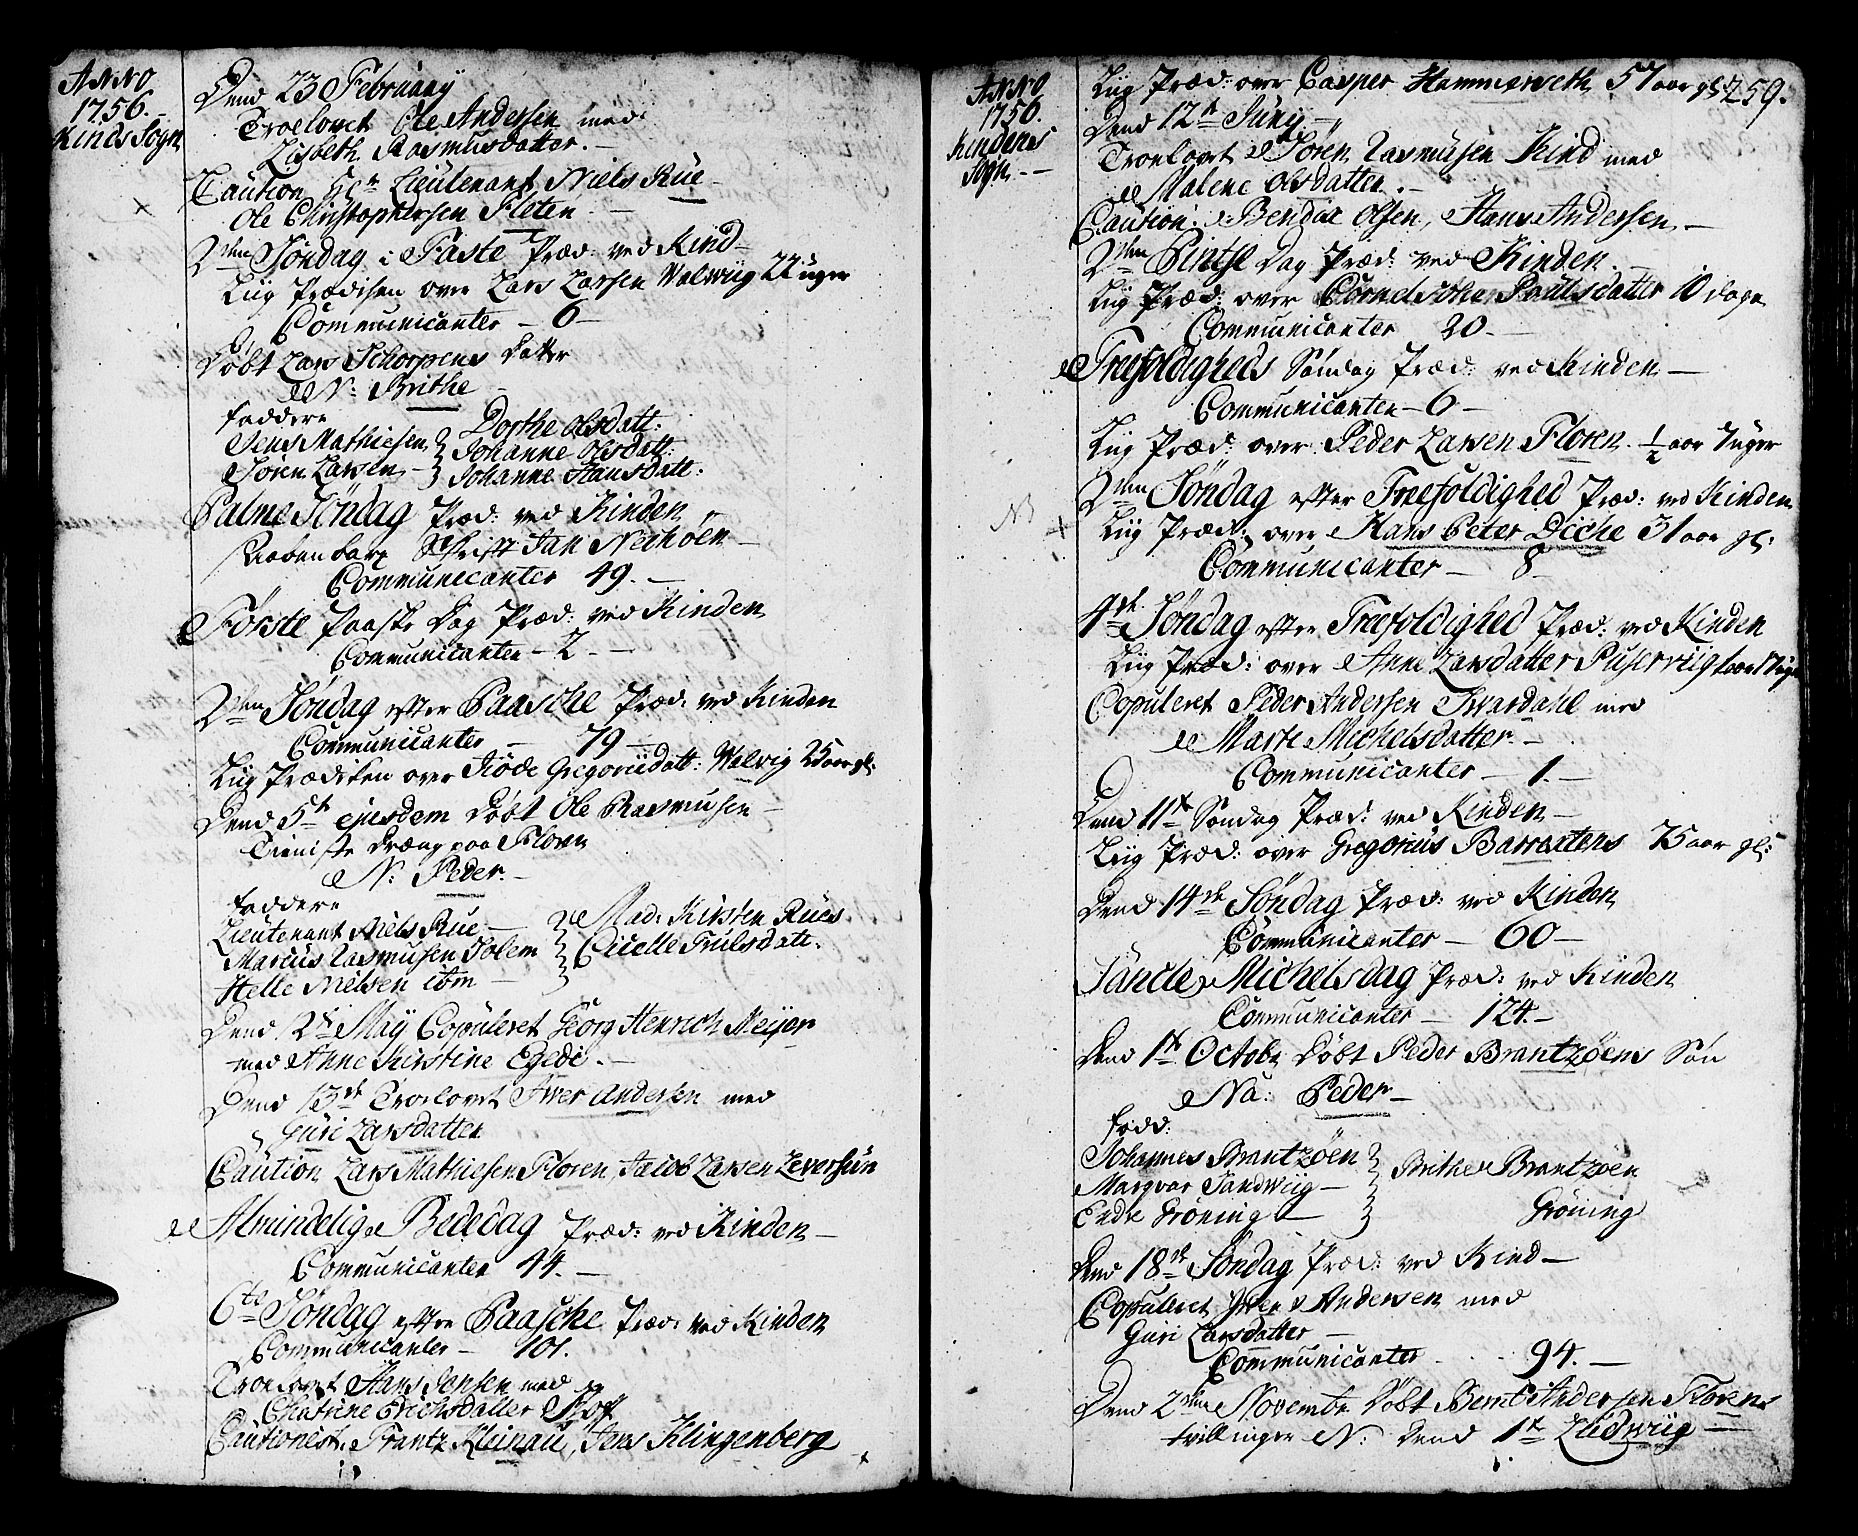 ANNO
1756.
Kinds Sogn
Dend 23 Februarij
Troelovet Ole Andersen med
Lisbeth Rasmusdatter.
Caution Hrn Lieutenant Niels Rüe
Ole Christophersen Fleten
2den Søndag i Faste Præd: ved Kind
Liig Prædiken over Lars Larsen Walwiig 22 uger
Communicanter - 6 -
Døbt Lars Schorpens datter
N: Brithe
faddere
Jens Mathiesen Dorthe Olsdatt:
Søren Larsen Johanne Olsdatt:
Johanne Hansdatt:
Palme Søndag Præd: ved Kinden
Aabenbare Schrift Jan
Communicanter 49.
Første Paaske dag Præd: ved Kinden
Communicanter - 2 -
2den Søndag efter Paasche Præd: ved Kinden
Communicanter - 79 -
Liig Prædiken over Gregoriidatt: Walvig 25 aar gl:
Dend 5te ejusdem døbt Ole Rasmusen
Tieniste dræng paa Floren
N: Peder -
faddere
Lieutenant Niels Rüe - Mad: Kirsten Rües
Marcus Rasmusen Solem Cicelle Trulsdatt:
Helle Nielsen ibm -
Dend 12te May Copuleret Georg Henrich Meijer
med Anne Kirstine Egede. -
Dend 13de Troelovet Iwer Andersen med
Guri Larsdatter
Caution Lars Mathiesen Floren, Jacob Larsen Leversund
Almindelige Bededag Præd: ved Kinden -
Communicanter 44. -
6te Søndag efter Paasche Præd: ved Kinden
Communicanter - 101.
Troelovet Hans Jensen med
Chatrine Erichsdatter Hoff
Cautionist: Frantz Kleinau, Jens Klingenberg
ANNO
1756.
Kindens
Sogn --
259.
Liig Præd: over Casper Hammerseth 57 aar gl:
Dend 12te Junij -
Troelovet Søren Rasmusen Kind med
Malene Olsdatter. -
Caution: Bendix Olsen, Hans Andersen. -
2den Pintse dag Præd: ved Kinden
Liig Præd: over Cornelische Poulsdatter 10 dage
Communicanter 20. -
Treefoldigheds Søndag Præd: ved Kinden -
Communicanter - 6 -
Liig Præd: over Peder Larsen Floren 1/2 aar 7 uger
2den Søndag efter Treefoldighed Præd: ved Kinden
NB +
Liig Præd: over Hans Peter Diche 31 aar gl:
Communicanter - 8
4de Søndag efter Treefoldighed Præd: ved Kinden
Liig Præd: over Anne Larsdatter
Copuleret Peder Andersen Swardahl med
Marte Michelsdatter -
Communicanter - 1. -
Dend 11te Søndag Præd: ved Kinden -
Liig Præd: over Gregorius Barroxtens 75 aar gl:
Dend 14de Søndag Præd: ved Kinden
Communicanter - 60 -
Sancte Michelsdag Præd: ved Kinden
Communicanter - 124. -
Dend 1te Octobr døbt Peder Brantzöens Søn
Na: Peder -
fadd:
Johannes Brantzöen Brithe Brantzöen
Marqvar Sandwiig -
Endre Grøning - Grøning
Dend 18de Søndag Præd: ved Kind -
Copuleret Iwer Andersen med
Guri Larsdatter -
Communicanter 94. -
Dend 2den Novembr døbt Bernt Andersen Florens
tvillinger N: dend 1te Ludwiig